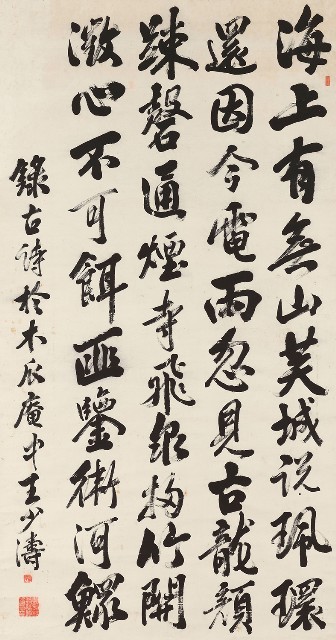 海上有無山芙城說珮環
還因今電雨忽見古龍顏
踈磬通煙寺飛竹關
澂心不可餌匪鑒衛河鰥
錄古詩於木瓜庵中王少濤